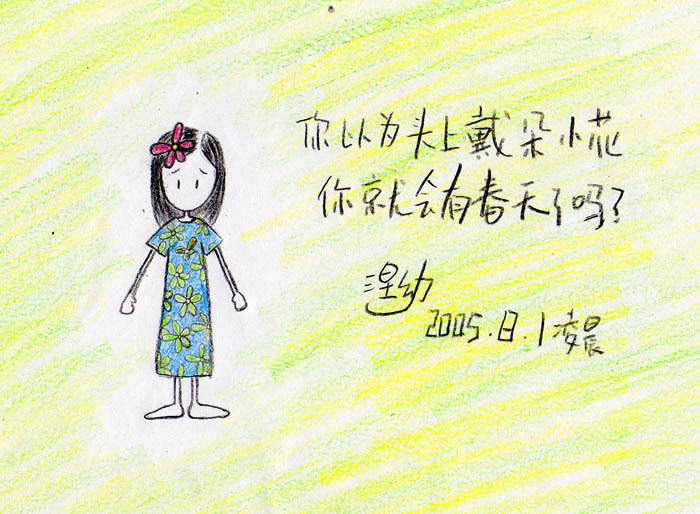 你以为头上戴朵小花
你就会有春天了吗?
2005.8.1凌晨